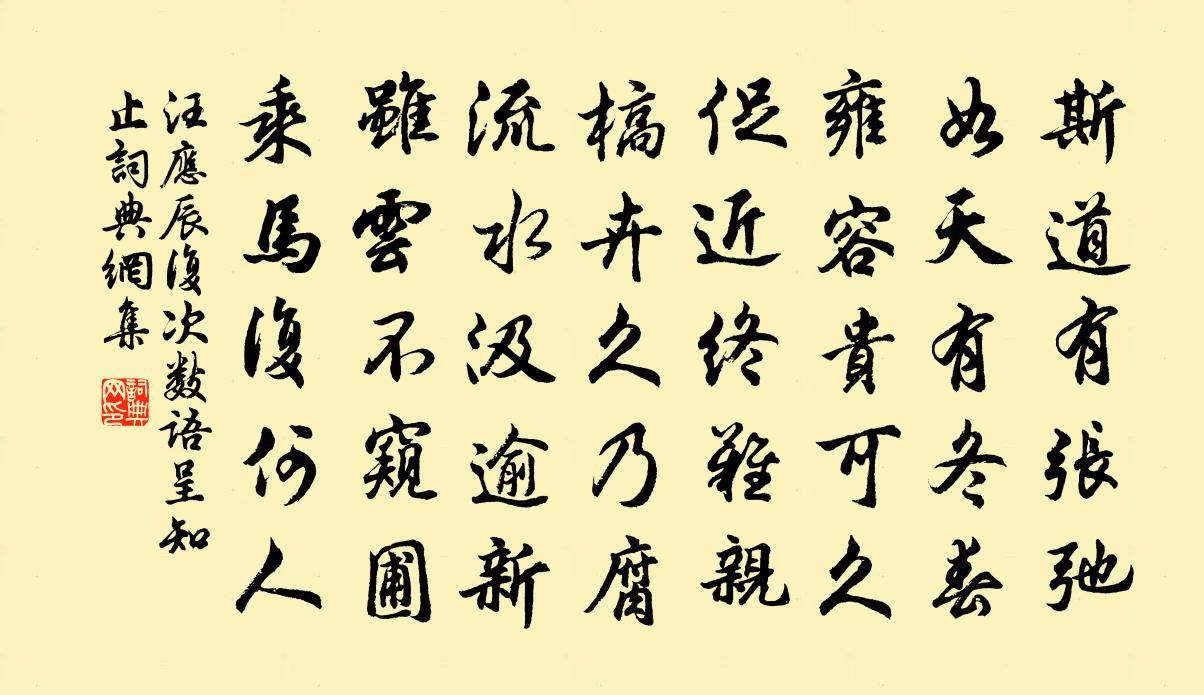 斯道有張弛
如天有冬春
雍容貴可久
促近終難親
槁卉久乃腐
流水汲逾新
雖雲不窺圃
乘馬復何人
汪應辰復次數語呈知
止詞典網集
詞典
网印